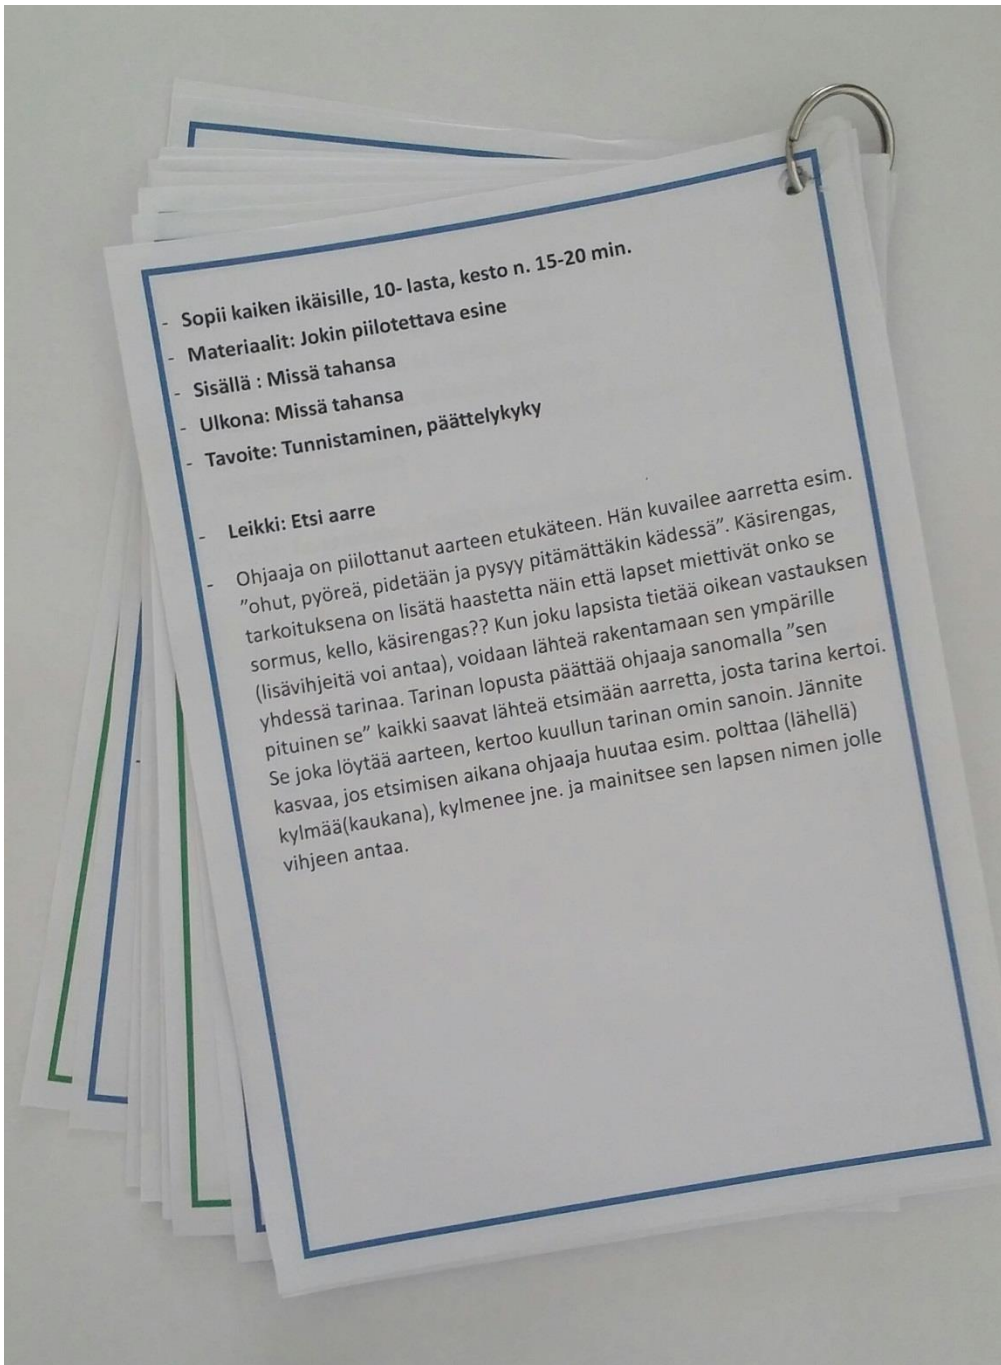 - Sopii kaiken ikäisille, 10- lasta, kesto n. 15-20 min.
- Materiaalit: Jokin piilotettava esine
- Sisällä : Missä tahansa
- Ulkona: Missä tahansa
- Tavoite: Tunnistaminen, päättelykyky
- Leikki: Etsi aarre
- Ohjaaja on piilottanut aarteen etukäteen. Hän kuvailee aarretta esim.
"ohut, pyöreä, pidetään ja pysyy pitämättäkin kädessä". Käsirengas,
tarkoituksena on lisätä haastetta näin että lapset miettivät onko se
sormus, kello, käsirengas?? Kun joku lapsista tietää oikean vastauksen
(lisävihjeitä voi antaa), voidaan lähteä rakentamaan sen ympärille
yhdessä tarinaa. Tarinan lopusta päättää ohjaaja sanomalla "sen
pituinen se" kaikki saavat lähteä etsimään aarretta, josta tarina kertoi.
Se joka löytää aarteen, kertoo kuullun tarinan omin sanoin. Jännite
kasvaa, jos etsimisen aikana ohjaaja huutaa esim. polttaa (lähellä)
kylmää(kaukana), kylmenee jne. ja mainitsee sen lapsen nimen jolle
vihjeen antaa.